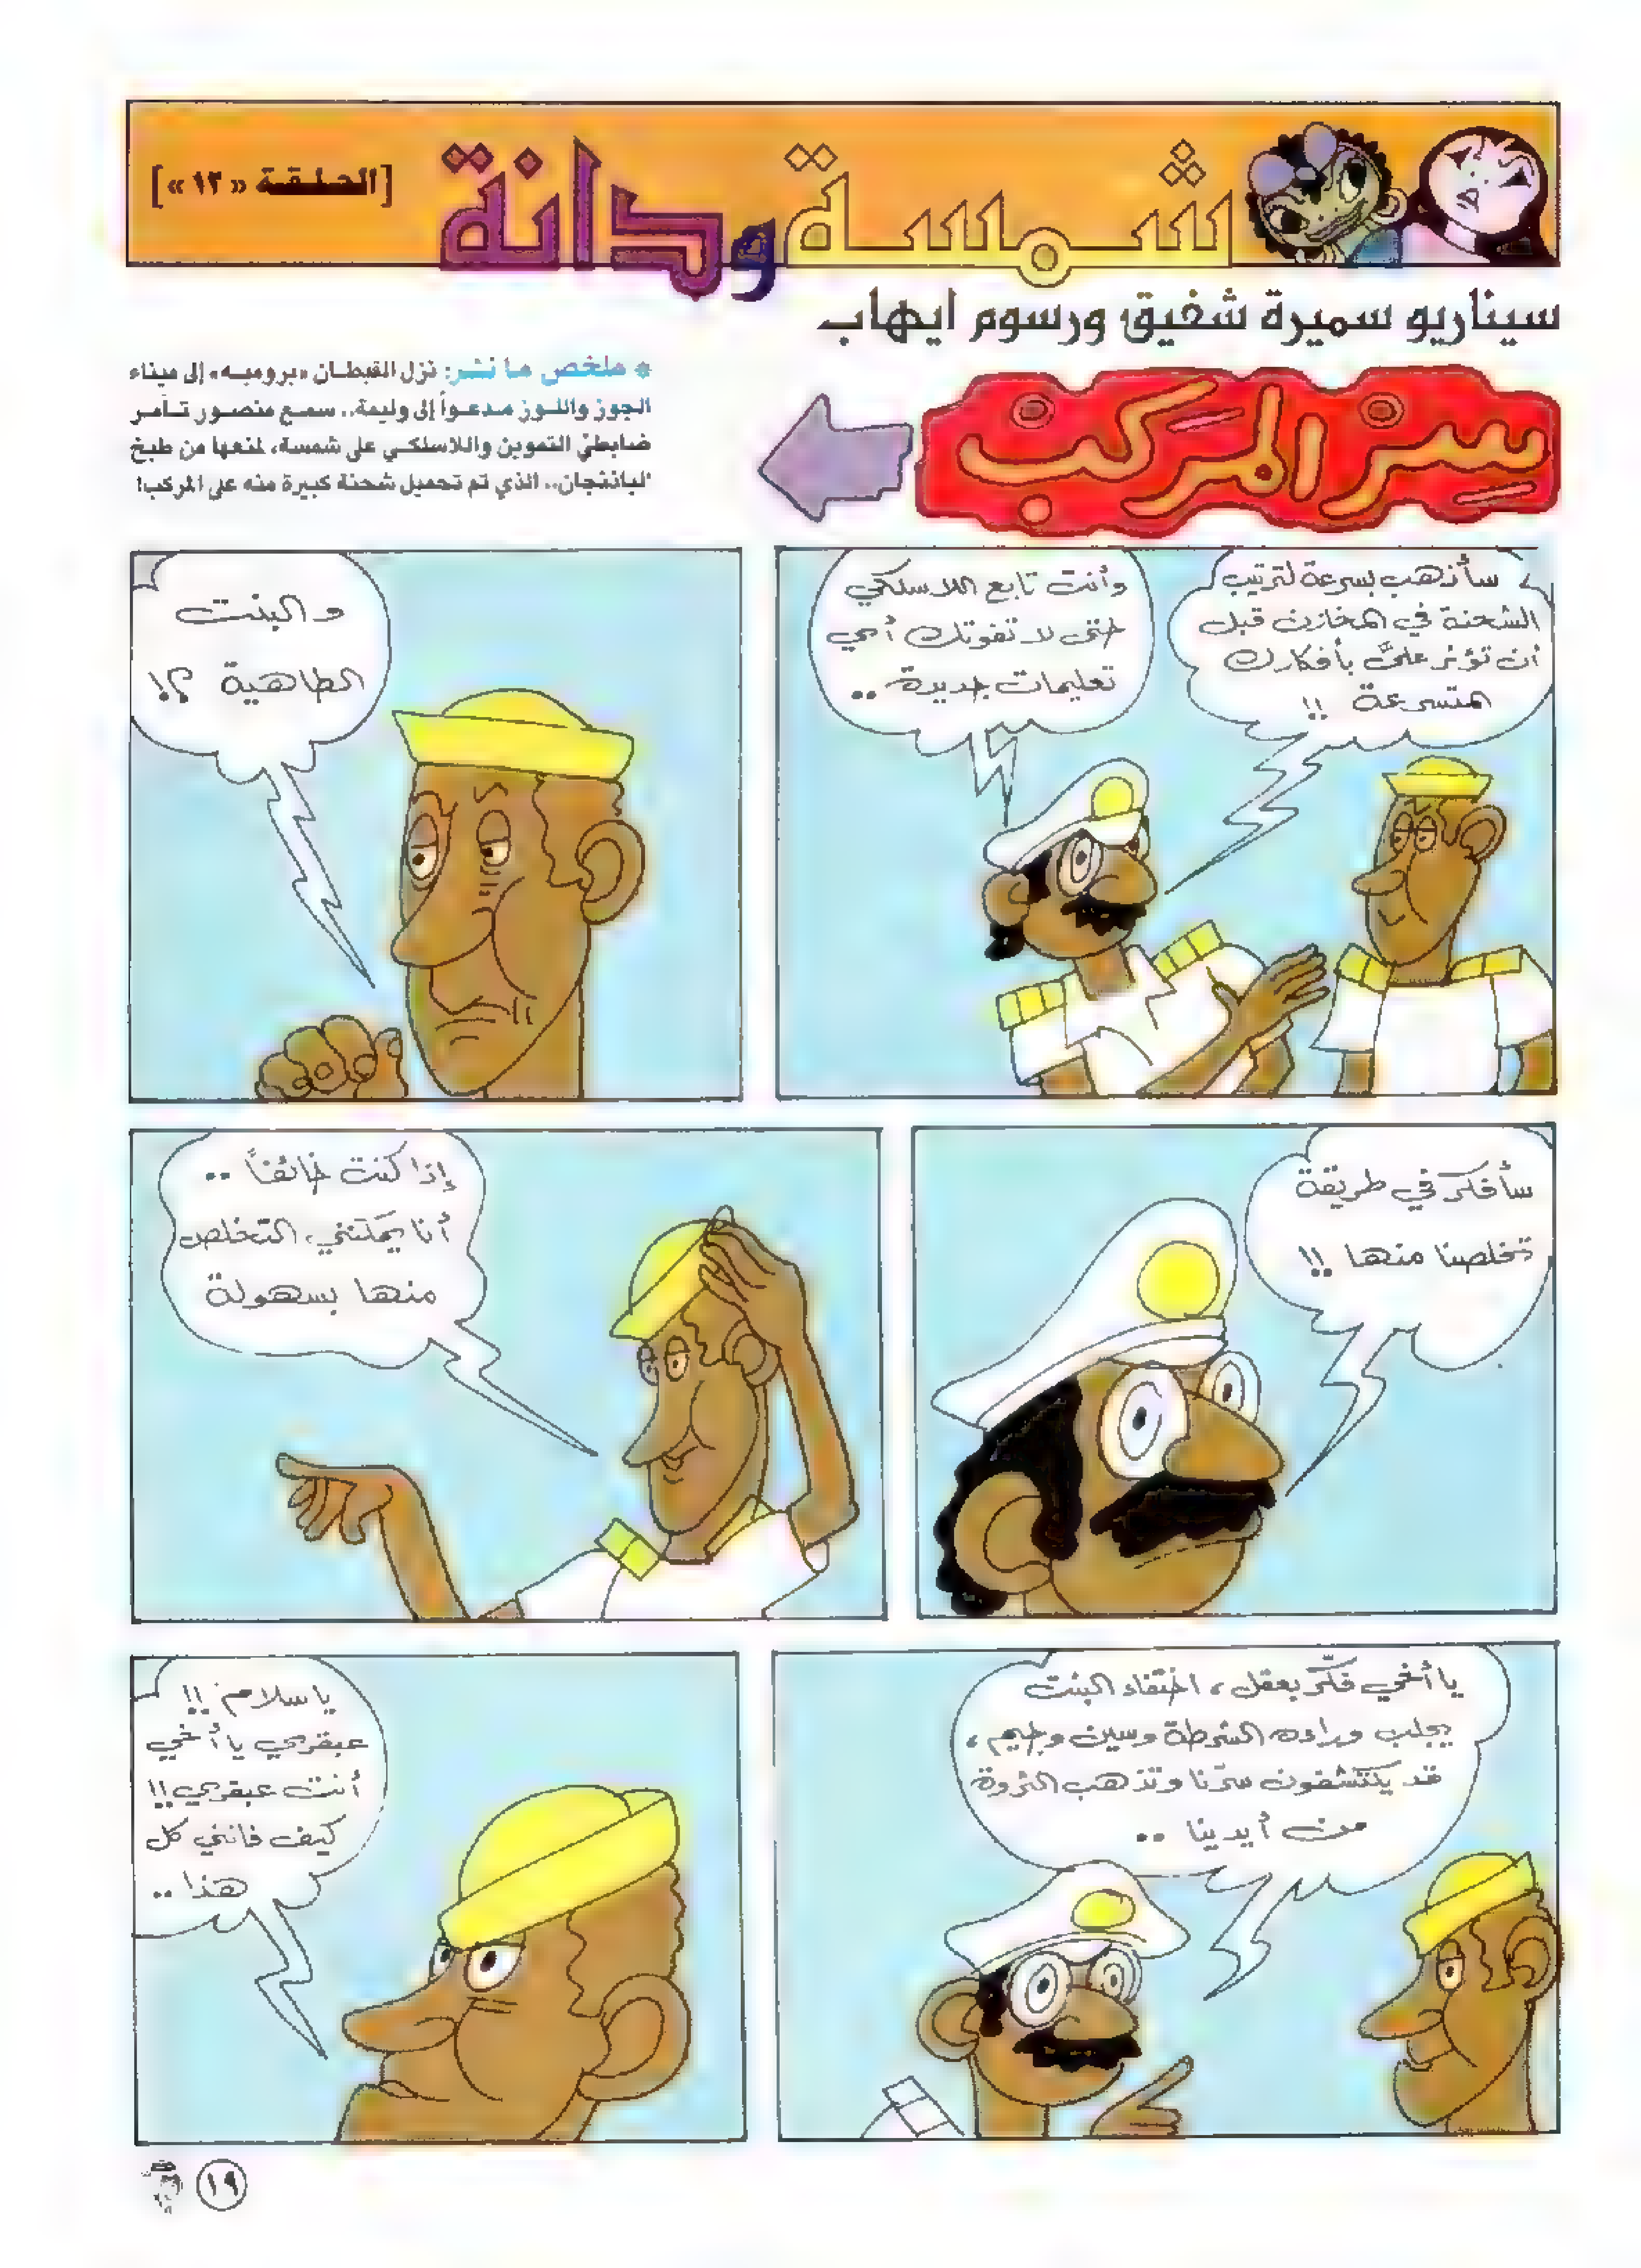 شمسة ودانة
[الحلقة «١٢»]
سيناريو سميرة شفيق ورسوم ايهاب
سِرّ المَركبْ
* ملخص ما نشر: نزل القبطان «برومبه» إلى ميناء
الجوز واللوز مدعواً إلى وليمة.. سمع منصور تآمر
ضابطيْ التموين واللاسلكي على شمسة، لمنعها من طبخ
الباذنجان.. الذي تم تحميل شحنة كبيرة منه على المركب!
سأذهب بسرعة لترتيب
الشحنة في المخازن قبل
أن تؤثر عليَّ بأفكارك
المتسرعة !!
وأنت تابع اللاسلكي
حتى لا تفوتك أي
تعليمات جديدة ..
والبنت
الطاهية ؟!
سأفكر في طريقة
تخلصنا منها !!
إذا كنت خائفاً ..
أنا يمكنني التخلص
منها بسهولة
يا أخي فكّر بعقل، اختفاء البنت
يجلب وراءه الشرطة وسين وجيم،
قد يكتشفون سرّنا وتذهب الثروة
من أيدينا ..
يا سلام !!
عبقري يا أخي
أنت عبقري !!
كيف فاتني كل
هذا ..
١٩